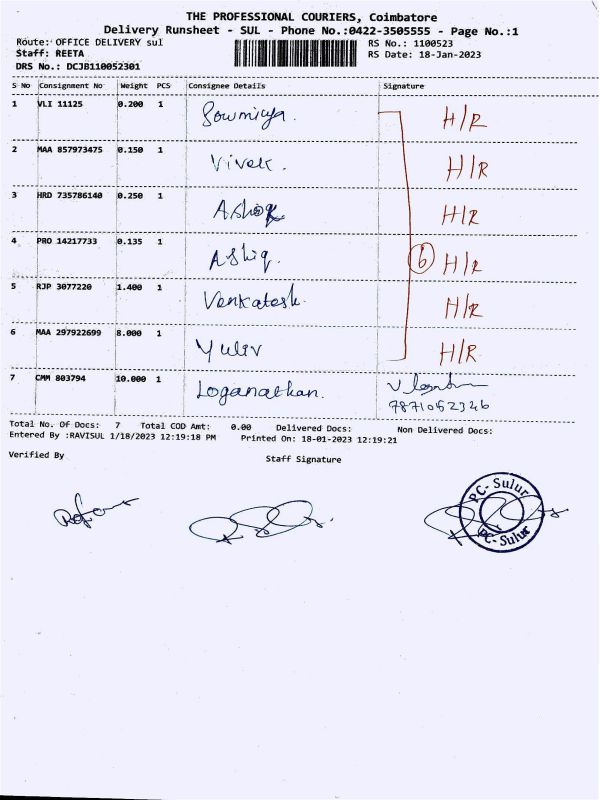 THE PROFESSIONAL COURIERS, Coimbatore
Delivery Runsheet - SUL - Phone No.:0422-3505555 - Page No.:1
Route: OFFICE DELIVERY sul RS No.: 1100523
Staff: REETA RS Date: 18-Jan-2023
DRS No.: DCJB110052301
S No Consignment No Weight PCS Consignee Details Signature
1 VLI 11125 0.200 1 Sowmiya. H/R
2 MAA 857973475 0.150 1 Vivek. H/R
3 HRD 735786140 0.250 1 Ashok H/R
4 PRO 14217733 0.135 1 Ashiq. 6 H/R
5 RJP 3077220 1.400 1 Venkatesh. H/R
6 MAA 297922699 8.000 1 Yuliv H/R
7 CMM 803794 10.000 1 Loganathan.
7871052326
Total No. Of Docs: 7 Total COD Amt: 0.00 Delivered Docs: Non Delivered Docs:
Entered By :RAVISUL 1/18/2023 12:19:18 PM Printed On: 18-01-2023 12:19:21
Verified By Staff Signature
PC- Sulur
PC- Sulur